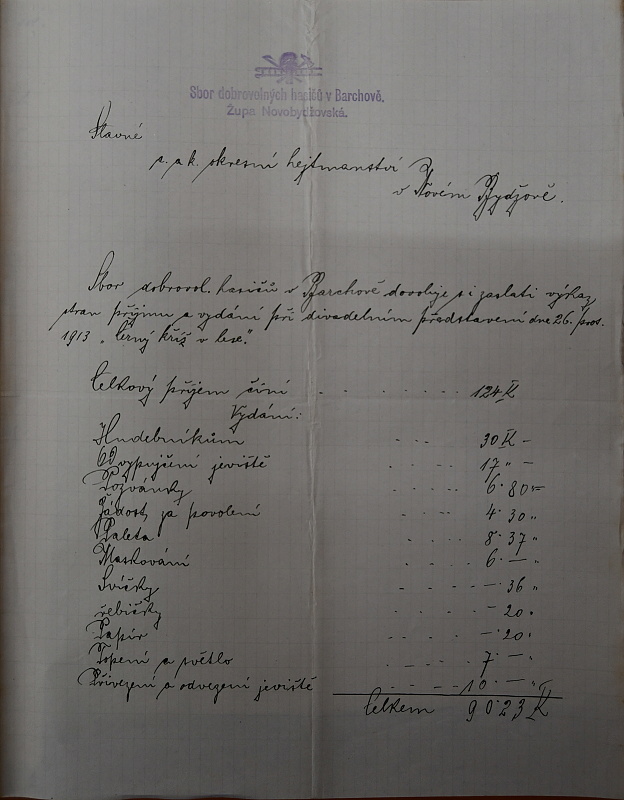 Sbor dobrovolných hasičů v Barchově.
Župa Novobydžovská.
Slavné
c. a k. okresní hejtmanství
v Novém Bydžově.
Sbor dobrovol. hasičů v Barchově dovoluje si zaslati výkaz
stran příjmu a vydání při divadelním představení dne 26. pros.
1913 „Černý kříž v lese."
Celkový příjem činí - - - - - - - 124 K
Vydání:
Hudebníkům - - - 30 K -
Od vypujčení jeviště - - - 17 „ -
Pozvánky - - - - 6·80 „
Žádost, za povolení - - - - 4·30 „
Paleta - - - - 8·37 „
Maskování - - - - 6·— „
Svíčky - - - - —·36 „
řebíčky - - - - —·20 „
Papír - - - - —·20 „
Topení a světlo - - - - 7·— „
Přivezení a odvezení jeviště - - - - 10·— „
Celkem 90·23 K